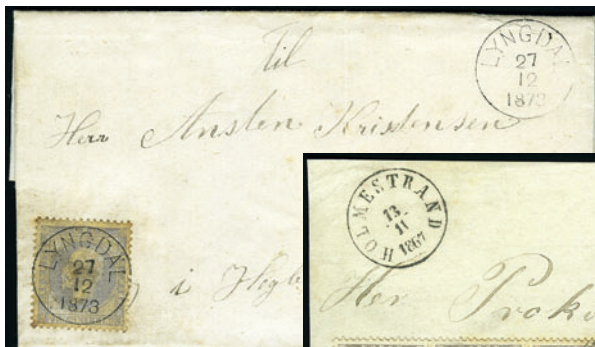 Til
LYNGDAL
27
12
1873
Herr Anslen Kristensen
LYNGDAL
27
12
1873
i
HOLMESTRAND
13
11
1867
Her Prok